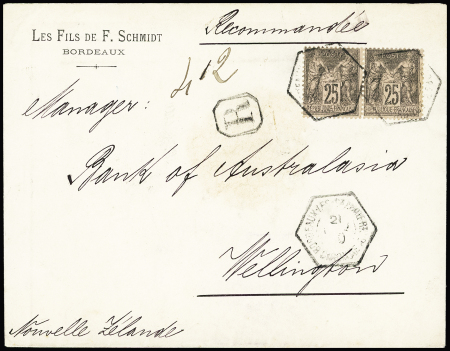 Recommandée
LES FILS DE F. SCHMIDT
BORDEAUX
412
R
25 25
Manager:
Bank of Australasia
21
Wellington
Nouvelle Zélande